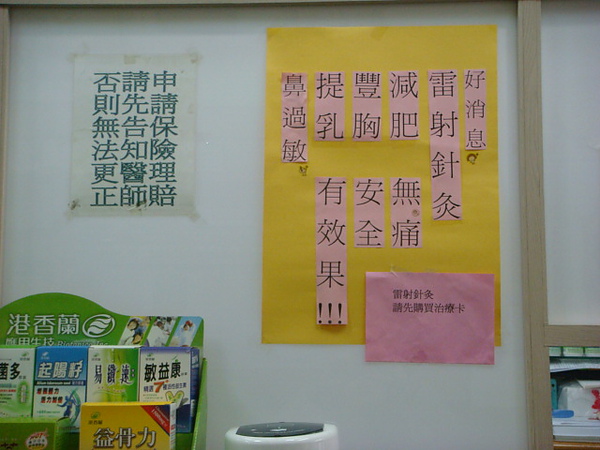 申請保險理賠
請先告知醫師
否則無法更正
好消息
雷射針灸
減肥
豐胸
提乳
鼻過敏
無痛
安全
有效果!!!
雷射針灸
請先購買治療卡
港香蘭
應用生技
菌多
敏益康
益骨力